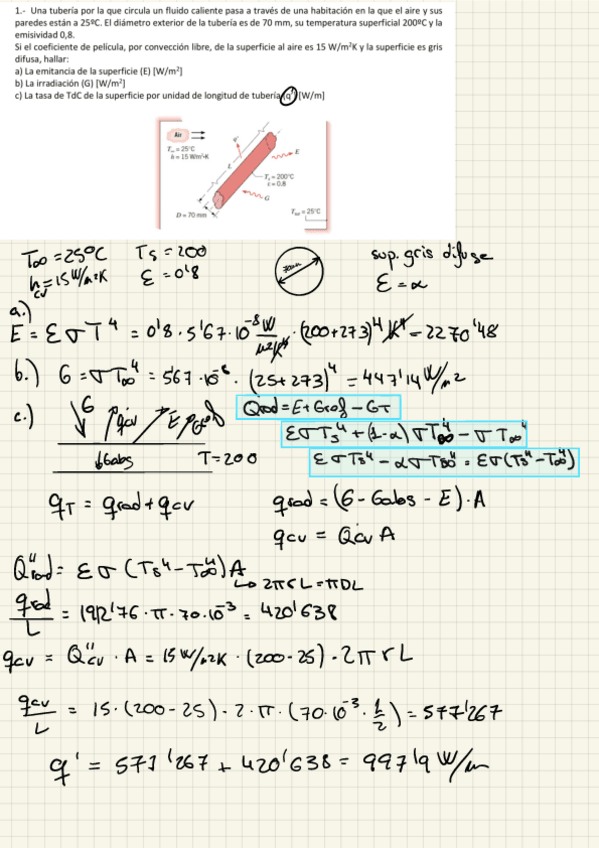 1.- Una tubería por la que circula un fluido caliente pasa a través de una habitación en la que el aire y sus
paredes están a 25ºC. El diámetro exterior de la tubería es de 70 mm, su temperatura superficial 200ºC y la
emisividad 0,8.
Si el coeficiente de película, por convección libre, de la superficie al aire es 15 W/m²K y la superficie es gris
difusa, hallar:
a) La emitancia de la superficie (E) [W/m²]
b) La irradiación (G) [W/m²]
c) La tasa de TdC de la superficie por unidad de longitud de tubería (q') [W/m]
Air
T∞ = 25°C
h = 15 W/m²·K
q'
E
L
Ts = 200°C
ε = 0.8
G
D = 70 mm
Tsur = 25°C
T∞ = 25ºC Ts = 200
hcv = 15 W/m²K ε = 0'8
70mm
sup. gris difuse
ε = α
a.)
E = εσT⁴ = 0'8 · 5'67·10⁻⁸ W/m²K⁴ · (200+273)⁴ K⁴ = 2270'48
b.) G = σT∞⁴ = 5'67·10⁻⁸ · (25+273)⁴ = 447'14 W/m²
c.) G qcv E Gref
Gabs T=200
Qrad = E + Gref - GT
εσTs⁴ + (1-α)σT∞⁴ - σT∞⁴
εσTs⁴ - ασT∞⁴ = εσ(Ts⁴ - T∞⁴)
qT = qrad + qcv qrad = (G - Gabs - E)·A
qcv = Qcv A
Q''rad = εσ(Ts⁴ - T∞⁴)A
↳ 2πrL = πDL
qrad/L = 1912'76 · π · 70·10⁻³ = 420'638
qcv = Q''cv · A = 15 W/m²K · (200-25) · 2πrL
qcv/L = 15·(200-25)·2·π·(70·10⁻³·1/2) = 577'267
q' = 577'267 + 420'638 = 997'9 W/m